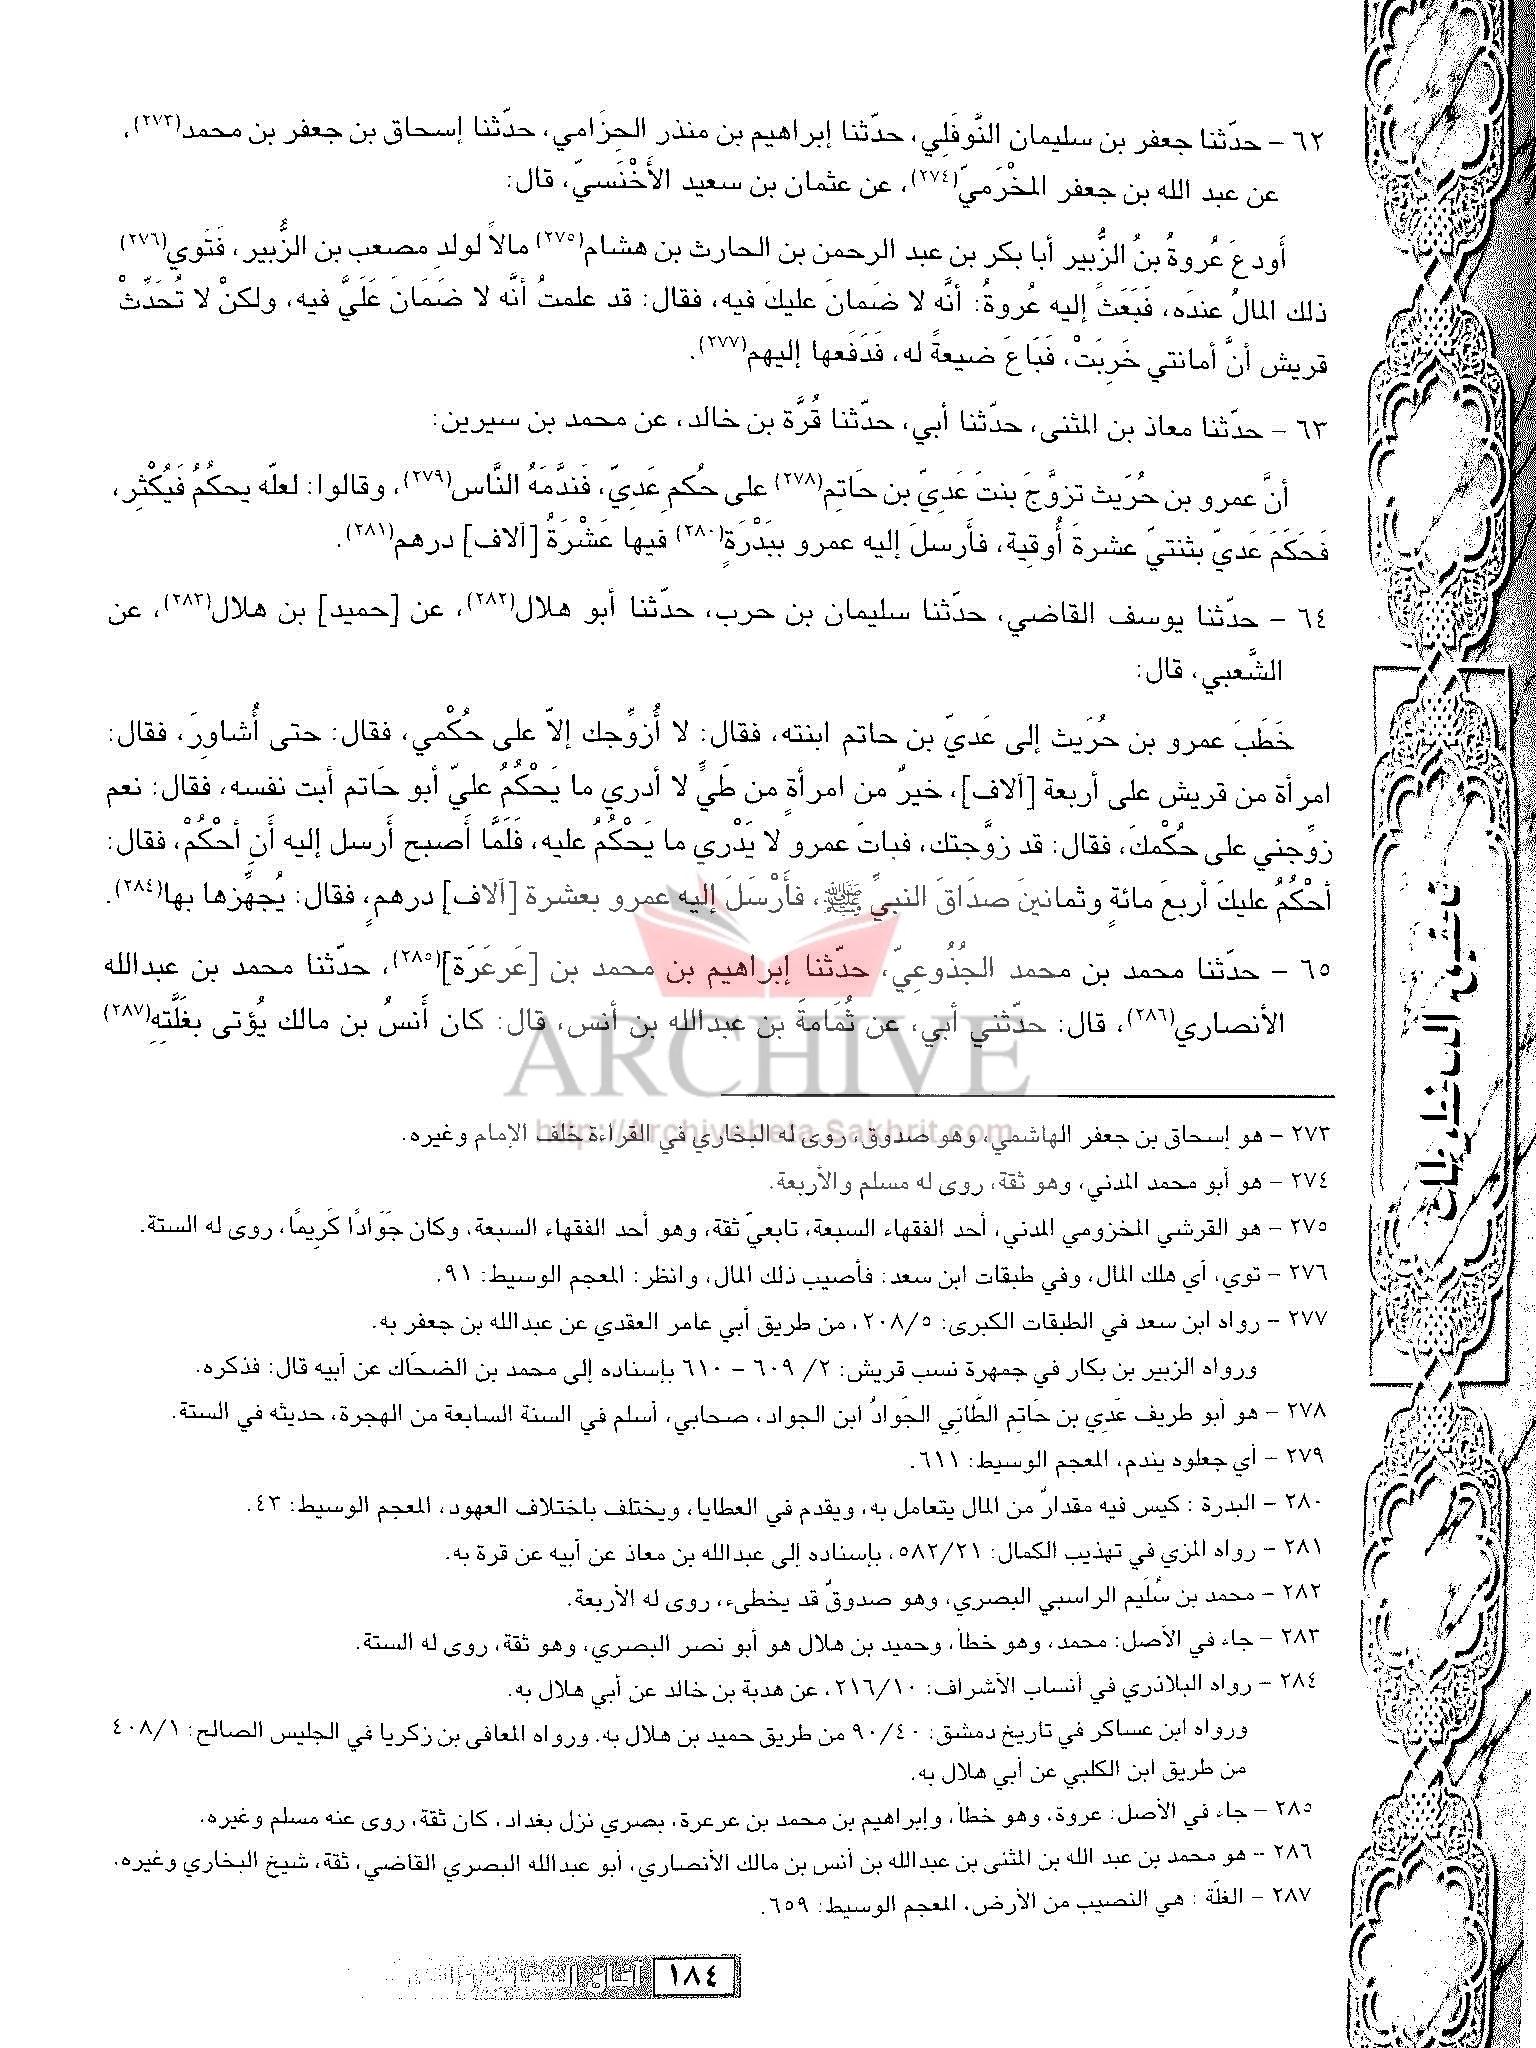 ٦٢ - حدّثنا جعفر بن سليمان النَّوفَلِي، حدّثنا إبراهيم بن منذر الحِزَامي، حدّثنا إسحاق بن جعفر بن محمد(٢٧٣)،
عن عبد الله بن جعفر المخْرَميّ(٢٧٤)، عن عثمان بن سعيد الأَخْنَسيّ، قال:
أَودعَ عُروةُ بنُ الزُّبير أبا بكر بن عبد الرحمن بن الحارث بن هشام(٢٧٥) مالاً لولدِ مصعب بن الزُّبير، فَتَوي(٢٧٦)
ذلك المالُ عندَه، فَبَعَثَ إليه عُروةُ: أنَّه لا ضَمانَ عليكَ فيه، فقال: قد علمتُ أنَّه لا ضَمَانَ عَلَيَّ فيه، ولكنْ لا تُحَدِّثْ
قريش أنَّ أمانتي خَرِبَتْ، فَبَاعَ ضيعةً له، فَدَفعها إليهم(٢٧٧).
٦٣ - حدّثنا معاذ بن المثنى، حدّثنا أبي، حدّثنا قُرَّة بن خالد، عن محمد بن سيرين:
أنَّ عمرو بن حُرَيث تزوَّجَ بنتَ عَديّ بن حَاتمِ(٢٧٨) على حُكمِ عَديّ، فَندَّمَهُ النَّاس(٢٧٩)، وقالوا: لعلّه يحكُمُ فَيُكْثرِ،
فَحَكَمَ عَديّ بثنتيَ عشرةَ أُوقية، فأَرسلَ إليه عمرو ببَدْرَةٍ(٢٨٠) فيها عَشْرَةُ [آلاف] درهم(٢٨١).
٦٤ - حدّثنا يوسف القاضي، حدّثنا سليمان بن حرب، حدّثنا أبو هلال(٢٨٢)، عن [حميد] بن هلال(٢٨٣)، عن
الشَّعبي، قال:
خَطَبَ عمرو بن حُرَيث إلى عَديّ بن حاتم ابنته، فقال: لا أُزوِّجك إلاّ على حُكْمي، فقال: حتى أُشاورَ، فقال:
امرأة من قريش على أربعة [آلاف]، خيرٌ من امرأةٍ من طَيٍّ لا أدري ما يَحْكُمُ عليّ أبو حَاتم أبت نفسه، فقال: نعم
زوِّجني على حُكْمكَ، فقال: قد زوَّجتك، فباتَ عمرو لا يَدْري ما يَحْكُمُ عليه، فَلَمَّا أَصبح أَرسل إليه أَنِ أحْكُمْ، فقال:
أحْكُمُ عليكَ أربعَ مائةٍ وثمانينَ صدَاقَ النبيِّ ﷺ، فأَرْسَلَ إليه عمرو بعشرة [آلاف] درهمٍ، فقال: يُجهِّزها بها(٢٨٤).
٦٥ - حدّثنا محمد بن محمد الجُذُوعِيّ، حدّثنا إبراهيم بن محمد بن [عَرعَرَة](٢٨٥)، حدّثنا محمد بن عبدالله
الأنصاري(٢٨٦)، قال: حدّثني أبي، عن ثُمَامةَ بن عبدالله بن أنس، قال: كان أَنسُ بن مالك يُؤتى بغَلَّتِهِ(٢٨٧)
ARCHIVE
http://Archivebeta.Sakhrit.com
٢٧٣ - هو إسحاق بن جعفر الهاشمي، وهو صدوق، روى له البخاري في القراءة خلف الإمام وغيره.
٢٧٤ - هو أبو محمد المدني، وهو ثقة، روى له مسلم والأربعة.
٢٧٥ - هو القرشي المخزومي المدني، أحد الفقهاء السبعة، تابعيّ ثقة، وهو أحد الفقهاء السبعة، وكان جَوَادًا كَرِيمًا، روى له الستة.
٢٧٦ - توي، أي هلك المال، وفي طبقات ابن سعد: فأصيب ذلك المال، وانظر: المعجم الوسيط: ٩١.
٢٧٧ - رواه ابن سعد في الطبقات الكبرى: ٢٠٨/٥، من طريق أبي عامر العقدي عن عبدالله بن جعفر به.
ورواه الزبير بن بكار في جمهرة نسب قريش: ٢/ ٦٠٩ - ٦١٠ بإسناده إلى محمد بن الضحّاك عن أبيه قال: فذكره.
٢٧٨ - هو أبو طريف عَدِي بن حَاتِم الطَّائِي الجَوادُ ابن الجواد، صحابي، أسلم في السنة السابعة من الهجرة، حديثه في الستة.
٢٧٩ - أي جعلوه يندم، المعجم الوسيط: ٦١١.
٢٨٠ - البدرة : كيس فيه مقدارٌ من المال يتعامل به، ويقدم في العطايا، ويختلف باختلاف العهود، المعجم الوسيط: ٤٣.
٢٨١ - رواه المزي في تهذيب الكمال: ٥٨٢/٢١، بإسناده إلى عبدالله بن معاذ عن أبيه عن قرة به.
٢٨٢ - محمد بن سُلَيم الراسبي البصري، وهو صدوقٌ قد يخطىء، روى له الأربعة.
٢٨٣ - جاء في الأصل: محمد، وهو خطأ، وحميد بن هلال هو أبو نصر البصري، وهو ثقة، روى له الستة.
٢٨٤ - رواه البلاذري في أنساب الأشراف: ٢١٦/١٠، عن هدبة بن خالد عن أبي هلال به.
ورواه ابن عساكر في تاريخ دمشق: ٩٠/٤٠ من طريق حميد بن هلال به. ورواه المعافى بن زكريا في الجليس الصالح: ٤٠٨/١
من طريق ابن الكلبي عن أبي هلال به.
٢٨٥ - جاء في الأصل: عروة، وهو خطأ، وإبراهيم بن محمد بن عرعرة، بصري نزل بغداد، كان ثقة، روى عنه مسلم وغيره.
٢٨٦ - هو محمد بن عبد الله بن المثنى بن عبدالله بن أنس بن مالك الأنصاري، أبو عبدالله البصري القاضي، ثقة، شيخ البخاري وغيره.
٢٨٧ - الغلّة : هي النصيب من الأرض، المعجم الوسيط: ٦٥٩.
١٨٤